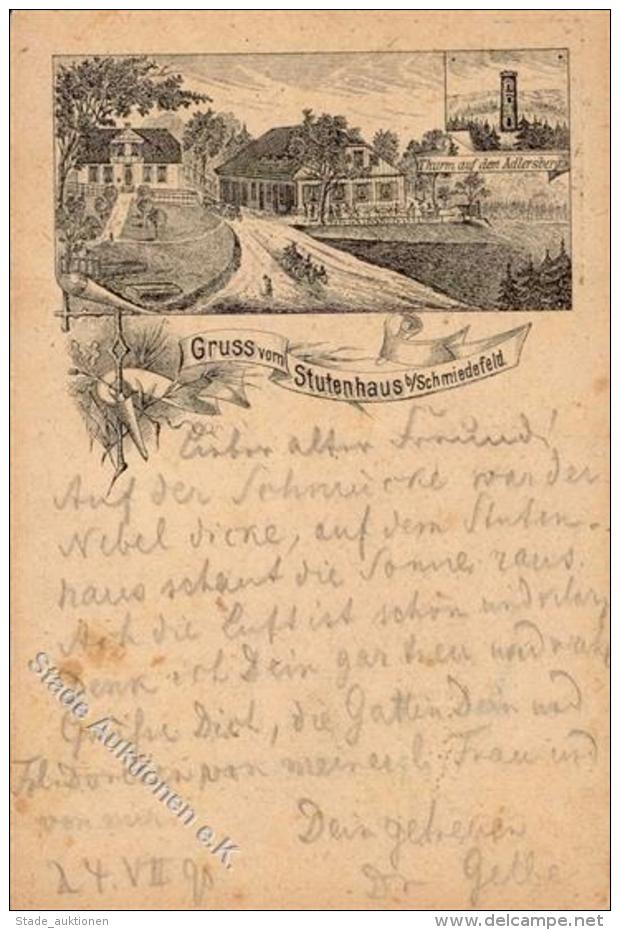 Thurm auf dem Adlersberg
Gruss vom
Stutenhaus b/Schmiedefeld.
Lieber alter Freund!
Auf der Schmücke war der
Nebel dicke, auf dem Stuten-
haus schaut die Sonne raus.
Ach die Luft ist schön und klar,
Denk ich Dein gar treu und wahr
Grüße Dich, die Gattin Dein und
Frl. Dorchen von meiner Frau und
von mir
Dein getreuer
24. VII 90
Dr
Stade Auktionen e.K.
Stade_auktionen
delcampe.net